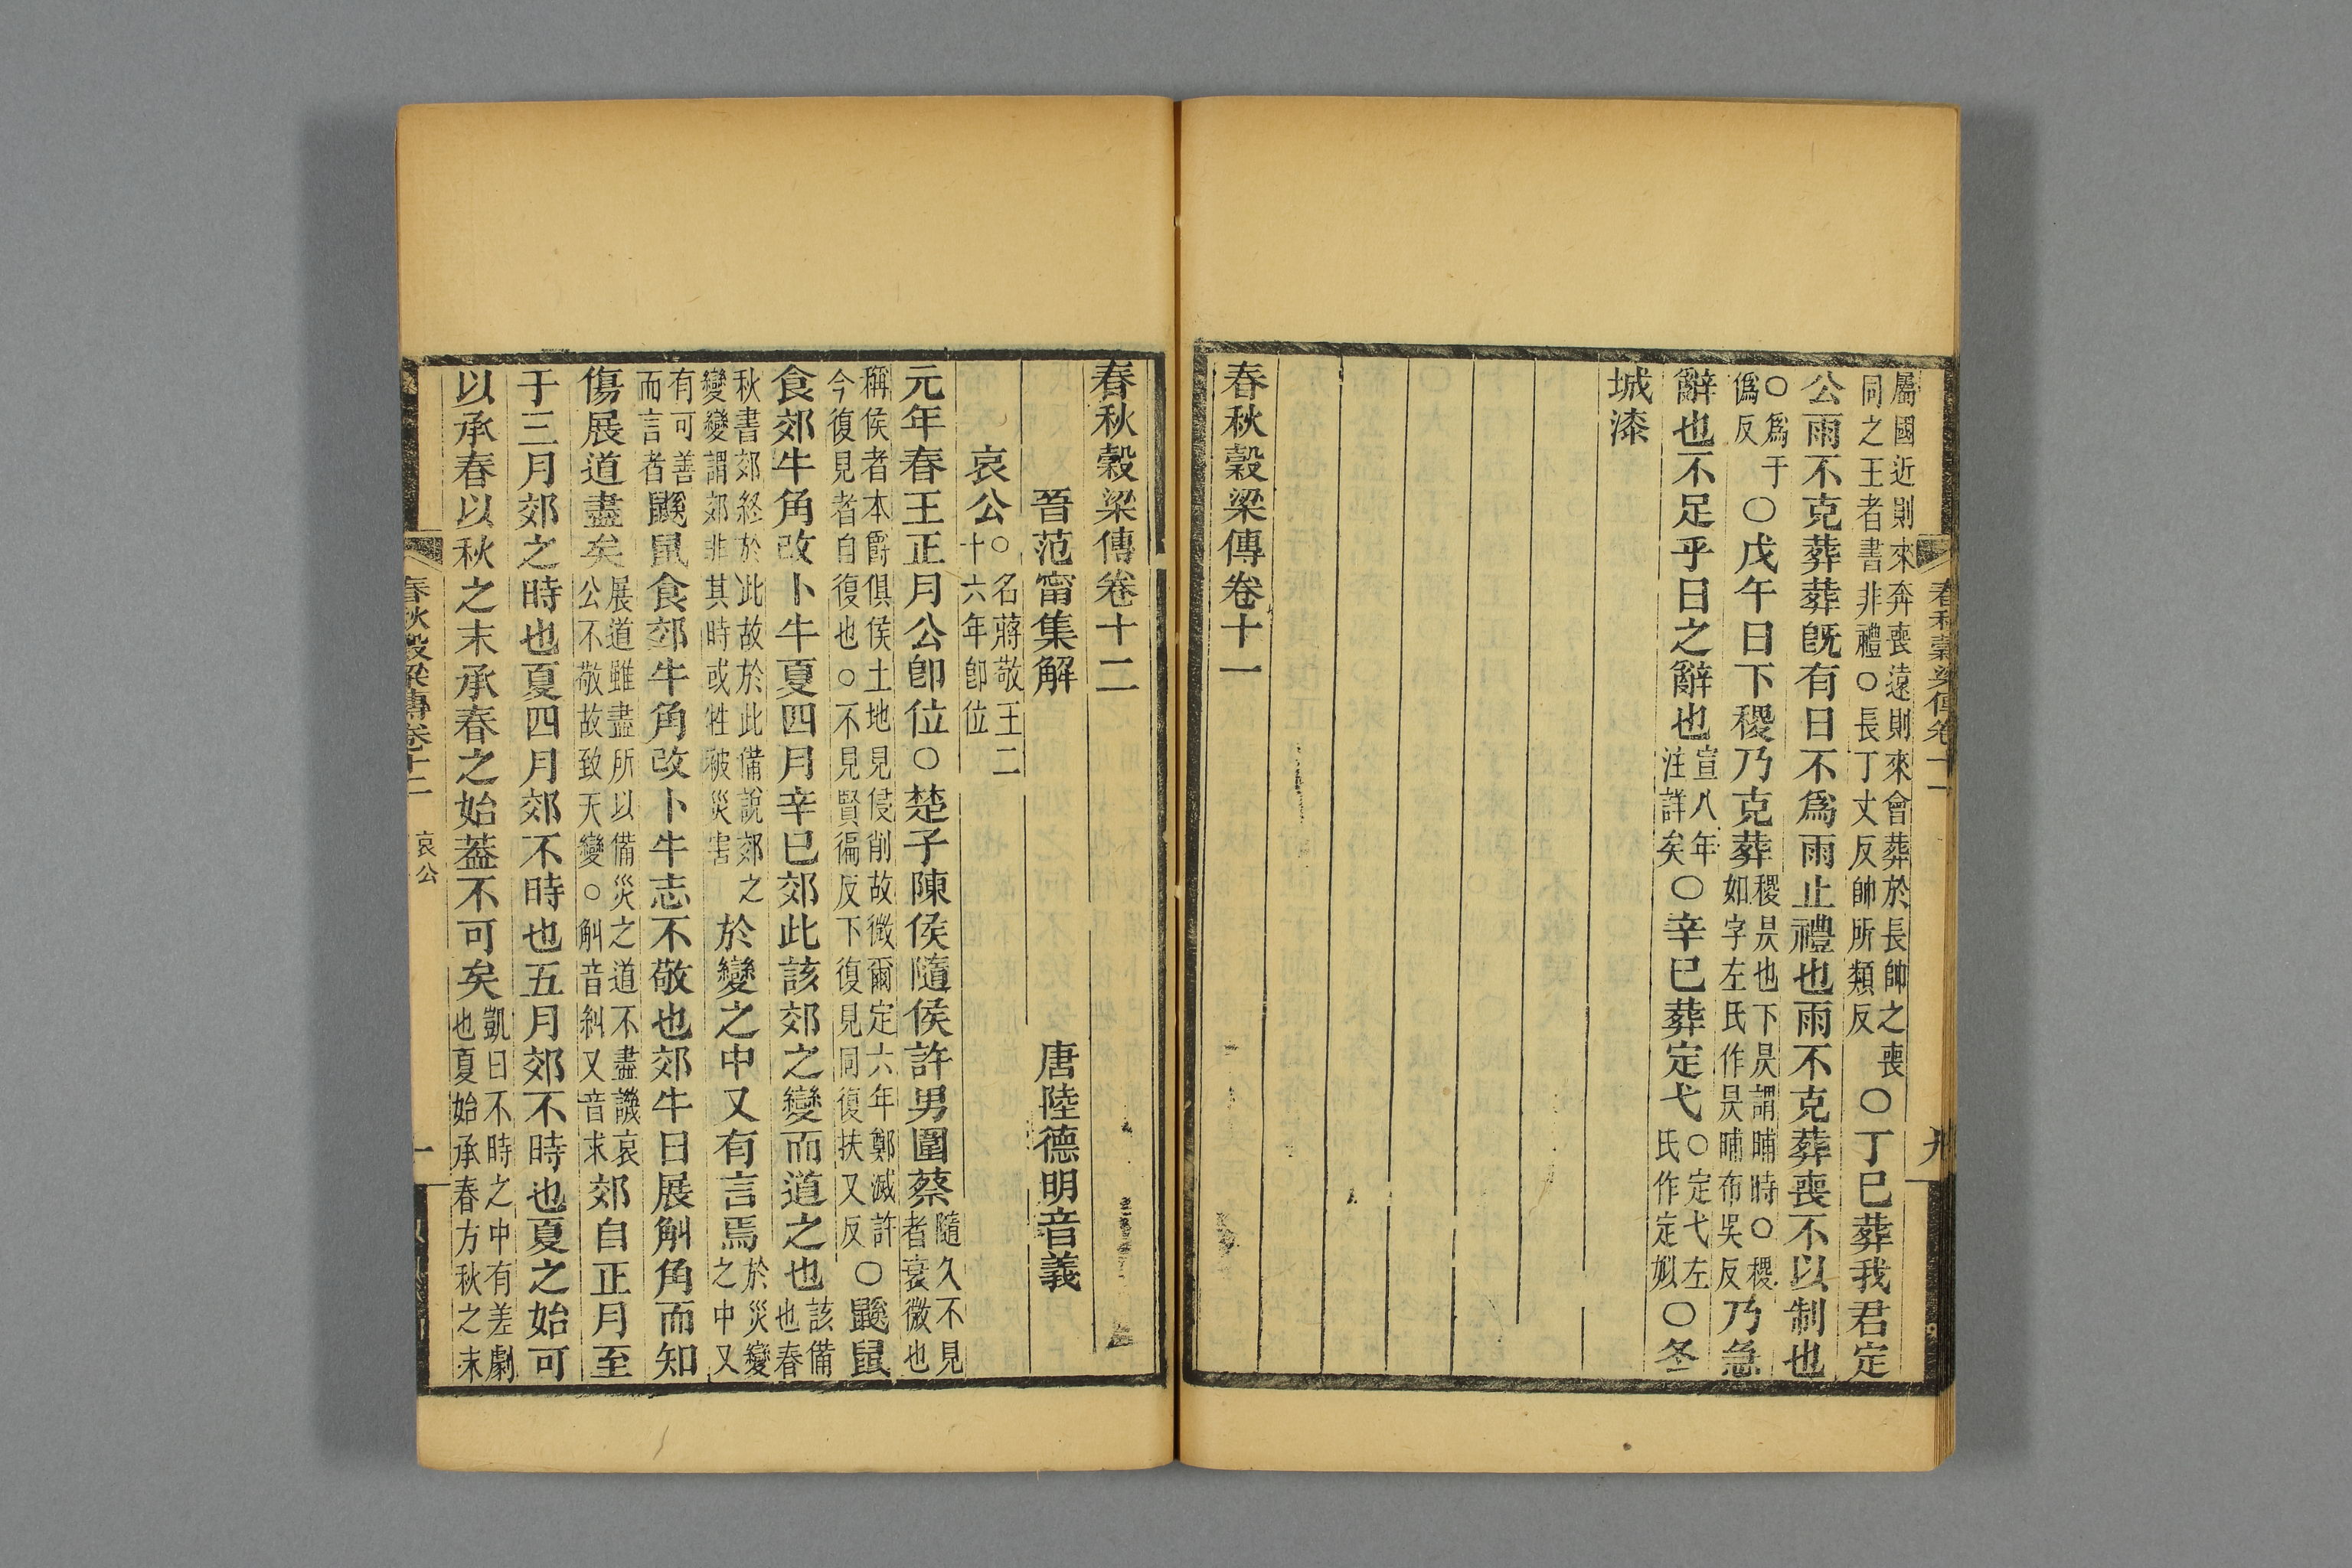 屬國近則來奔喪遠則來會葬於長帥之喪
同之王者書非禮○長丁丈反帥所類反
○丁巳葬我君定
公雨不克葬葬既有日不爲雨止禮也雨不克葬喪不以制也
○爲于
僞反
○戊午日下稷乃克葬
稷昃也下昃謂晡時○稷
如字左氏作昃晡布吳反
乃急
辭也不足乎日之辭也
宣八年
注詳矣
○辛巳葬定弋
○定弋左
氏作定姒
○冬
城漆
春秋穀梁傳卷十一
春秋穀梁傳卷十二
晉范甯集解
唐陸德明音義
哀公
○名蔣敬王二
十六年卽位
元年春王正月公卽位○楚子陳侯隨侯許男圍蔡
隨久不見
者衰微也
稱侯者本爵俱侯土地見侵削故微爾定六年鄭滅許
今復見者自復也○不見賢徧反下復見同復扶又反
○鼷鼠
食郊牛角改卜牛夏四月辛巳郊此該郊之變而道之也
該備
也春
秋書郊終於此故於此備說郊之
變變謂郊非其時或牲被災害
於變之中又有言焉
於災變
之中又
有可善
而言者
鼷鼠食郊牛角改卜牛志不敬也郊牛日展斛角而知
傷展道盡矣
展道雖盡所以備災之道不盡譏哀
公不敬故致天變○斛音糾又音求
郊自正月至
于三月郊之時也夏四月郊不時也五月郊不時也夏之始可
以承春以秋之末承春之始蓋不可矣
凱曰不時之中有差劇
也夏始承春方秋之末
春秋穀梁傳卷十二
哀公
一